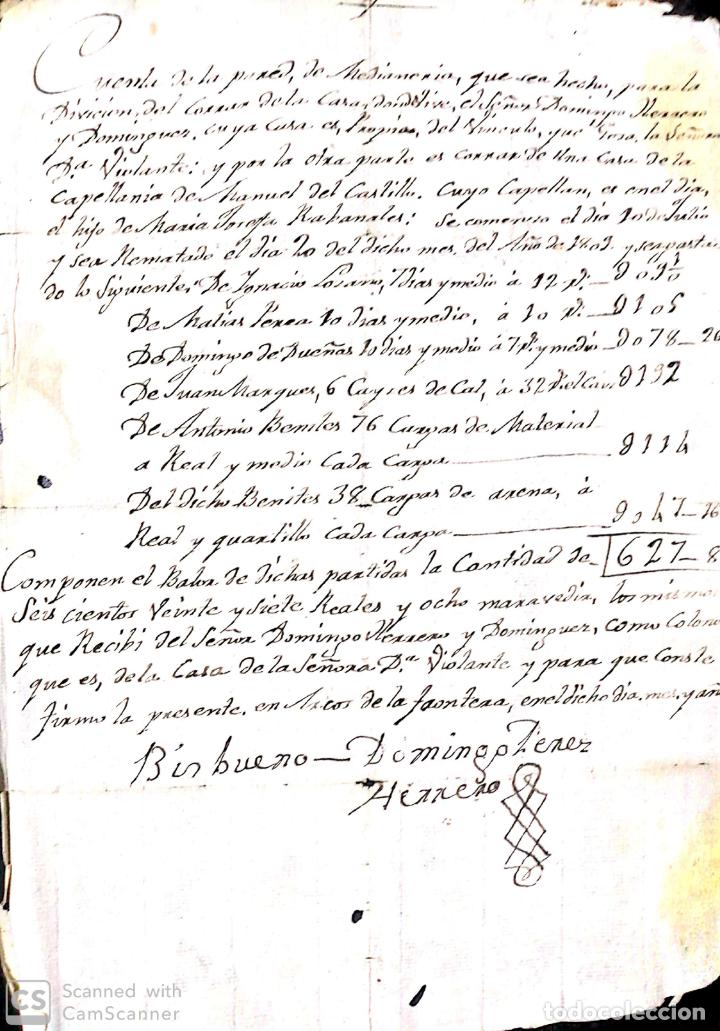 Cuenta de la pared, de Medianeria, que sea hecho, para la
Divicion, del Corrar de la Casa, donde Vive, el Señor Domingo Herrero
y Dominguez, cuya Casa es, Propia, del Vinculo, que Gosa, la Señora
Dª Violante: y por la otra parte es corrar de Una Casa de la
Capellania de Manuel del Castillo. Cuyo Capellan, es en el dia,
el hijo de Maria Josefa Rabanales: Se comenso el dia 10 de Julio
y ser Rematado el dia 20 del dicho mes, del Año de 1803 y se gasta
do lo Siguiente: De Ignacio Losano, 7 dias y medio á 12 rˢ.
De Matias Perea 10 dias y medio, á 10 rˢ. — 0105
De Domingo de Dueñas 10 dias y medio á 7 rˢ y medio — 0078 — 26
De Juan Marques, 6 Cayses de Cal, á 32 rˢ el 0192
De Antonio Benites 76 Cargas de Material
a Real y medio Cada Carga — 0114
Del dicho Benites 38 Cargas de arena, á
Real y quartillo cada Carga — 0047 — 16
Componen el Balor de dichas partidas la Cantidad de — 627 — 8
Seis cientos Veinte y Siete Reales y ocho maravedis, los mismos
que Recibi del Señor Domingo Herrero y Dominguez, como Colono
que es, de la Casa de la Señora Dª Violante y para que Conste
firmo la presente. en Arcos de la frontera, en el dicho dia, mes, y año
Bis bueno — Domingo Perez
Herrero
CS Scanned with
CamScanner
todocoleccion